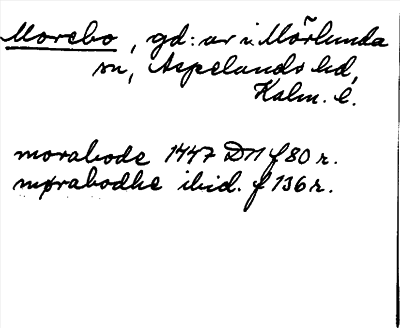 Morebo, gd: ar i Mörlunda
sn, Aspelands hd,
Kalm. l.
morabode 1447 D11 f 80 r.
morabodhe ibid. f 136 r.